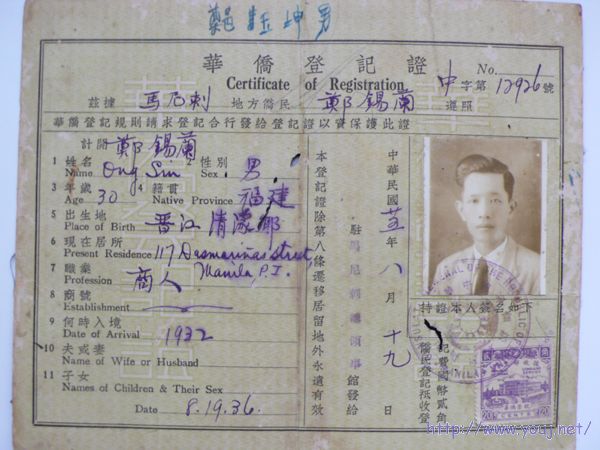 鄭 坤 男
華僑登記證
Certificate of Registration
No. 12926
中字第 號
茲據 馬尼剌 地方僑民 鄭錫蘭 遵照
華僑登記規則請求登記合行發給登記證以資保護此證
計開 鄭錫蘭
1 姓名 Name Ong Sin
2 性別 Sex. 男
3 年歲 Age 30
4 籍貫 Native Province 福建
5 出生地 Place of Birth 晋江清濛鄉
6 現在居所 Present Residence 117 Dasmarinas street,
Manila, P.I.
7 職業 Profession 商人
8 商號 Establishment
9 何時入境 Date of Arrival 1932
10 夫或妻 Name of Wife or Husband
11 子女 Names of Children & Their Sex
Date 8.19.36.
本登記證除第八條遷移居留地外永遠有效
中華民國廿五年八月十九日
駐 領事館發給
持證本人簽名如下
記費國幣貳角
僑民登記抵收登
20 20
http://www.youj.net/